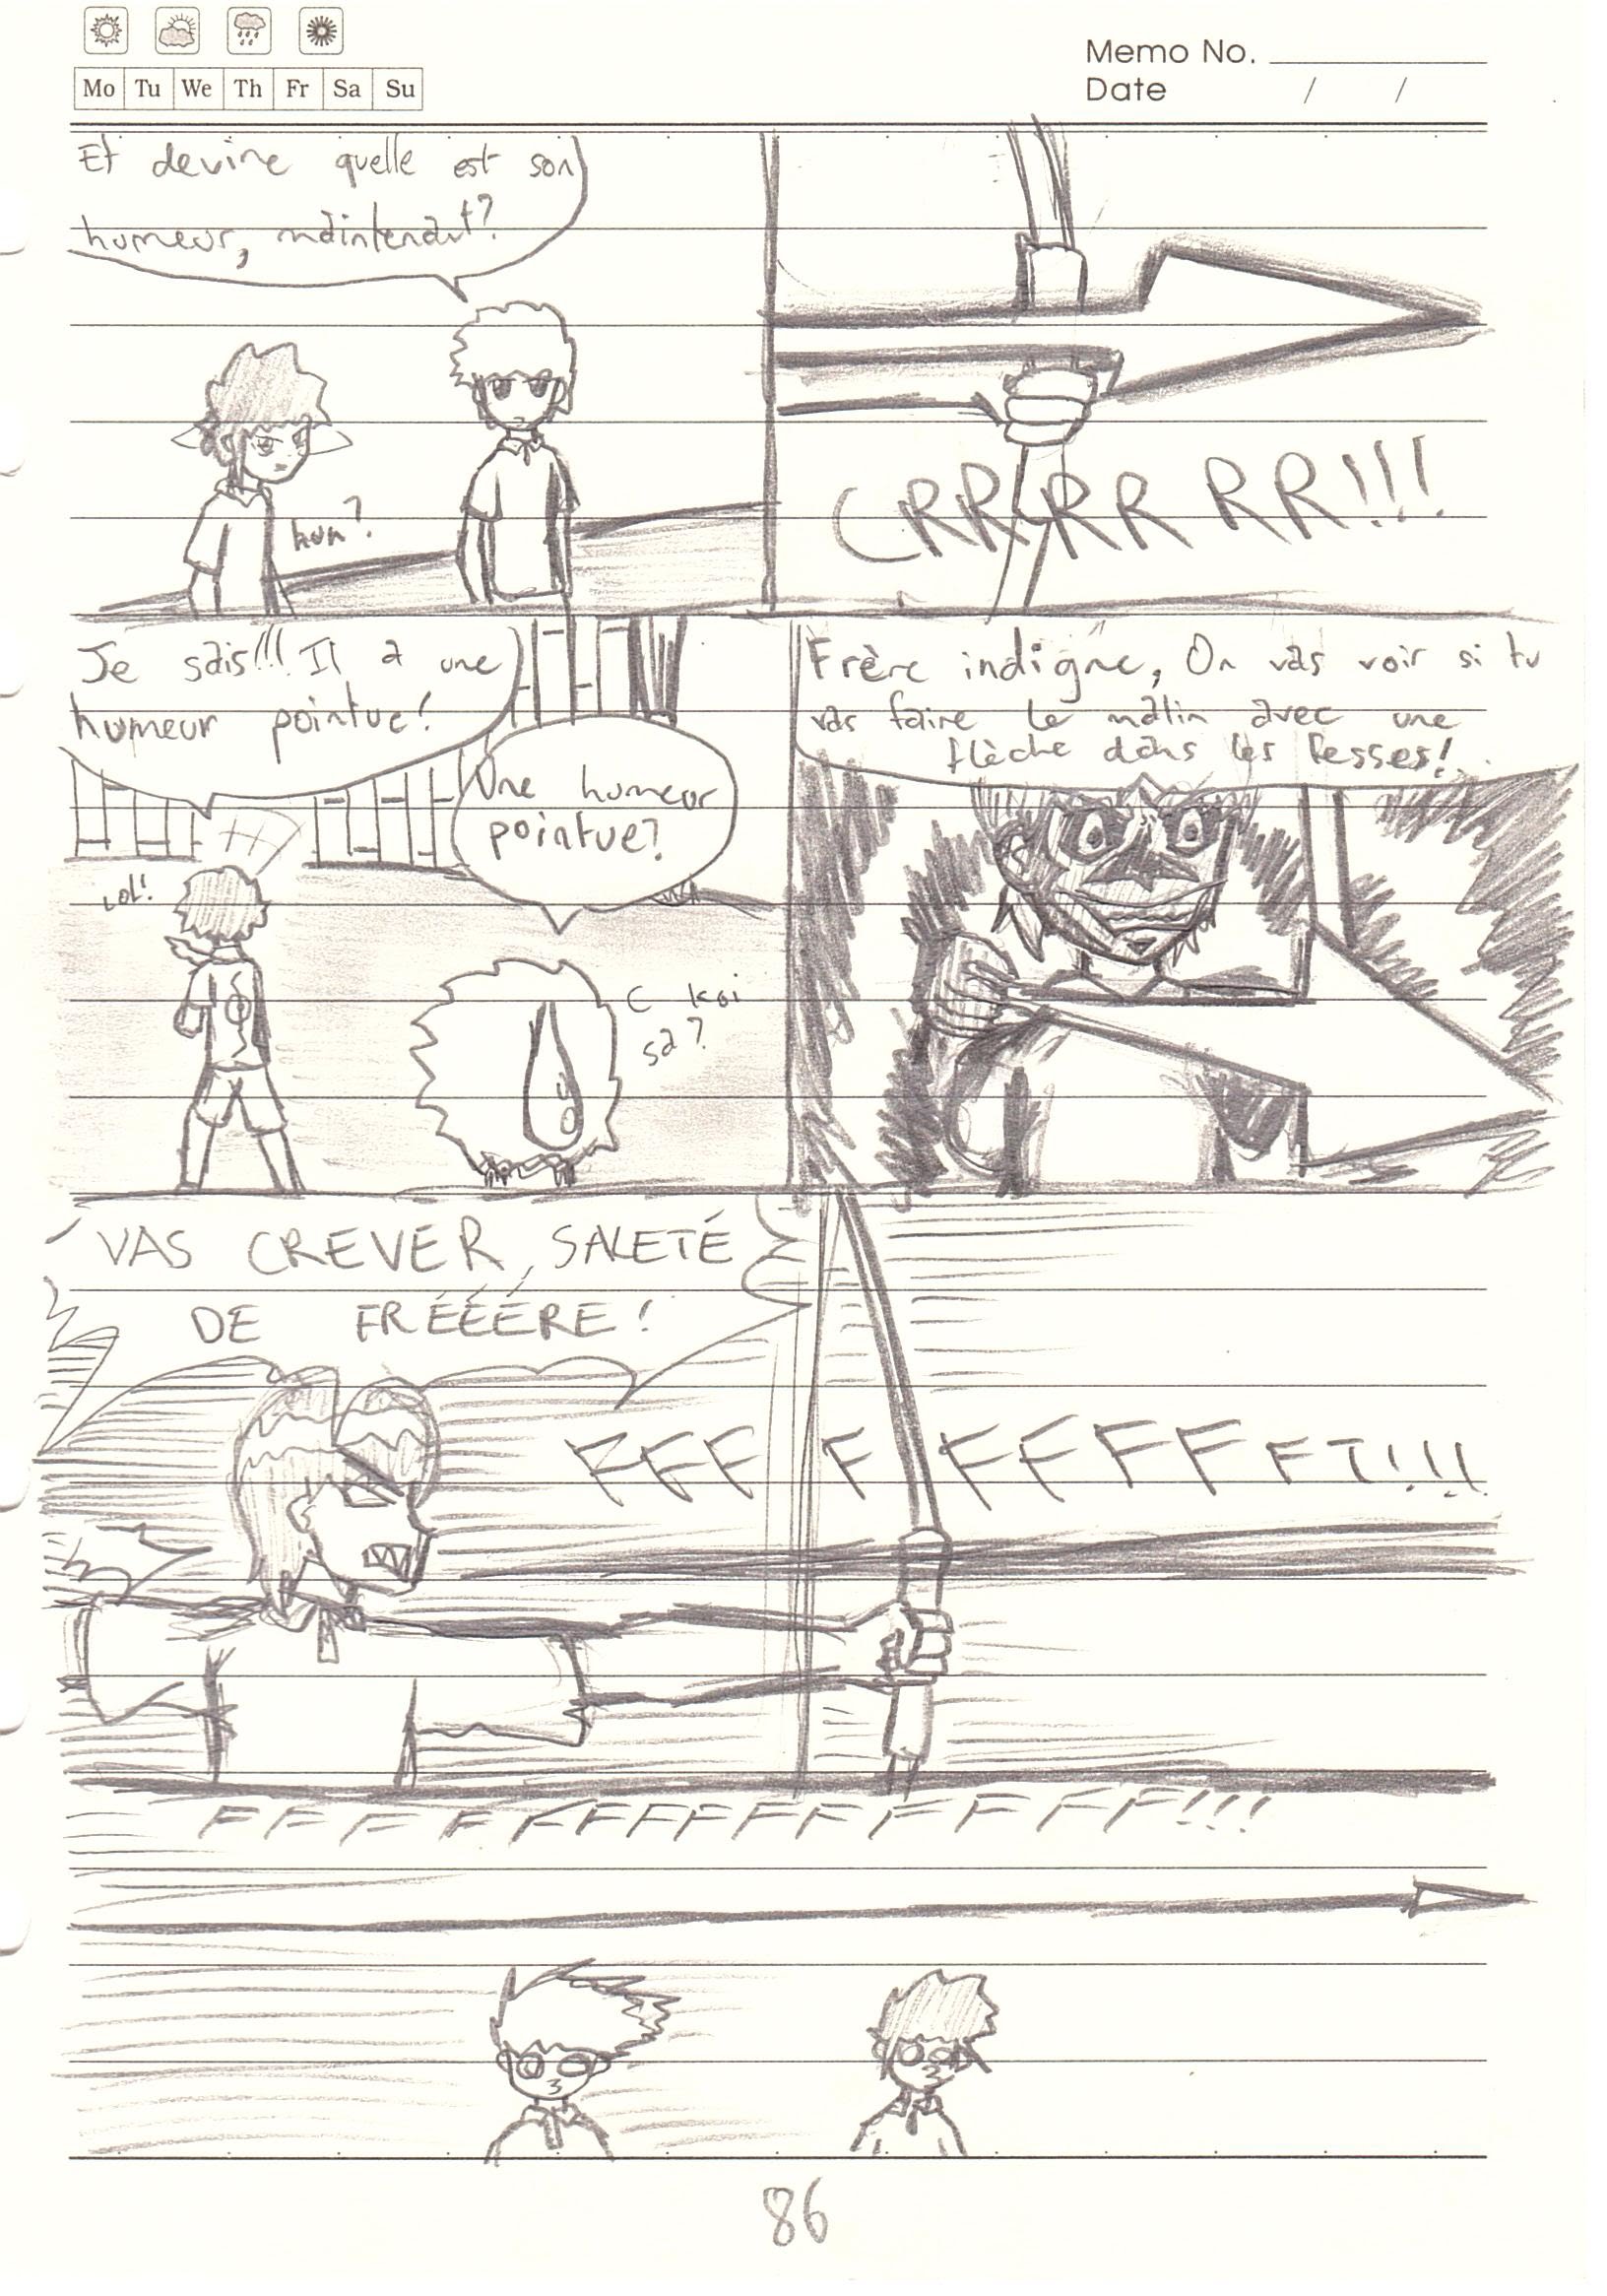 Mo Tu We Th Fr Sa Su
Memo No.
Date / /
Et devine quelle est son
humeur, maintenant?
hun?
CRRRRRR!!!
Je sais!!! Il a une
humeur pointue!
Une humeur
pointue?
Lol!
C koi
sa?
Frère indigne, On vas voir si tu
vas faire le malin avec une
flèche dans les fesses!
VAS CREVER, SALETÉ
DE FRÉÉÉRE!
FFFFFFFFFT!!!
FFFFFFFFFFFFFF!!!
86